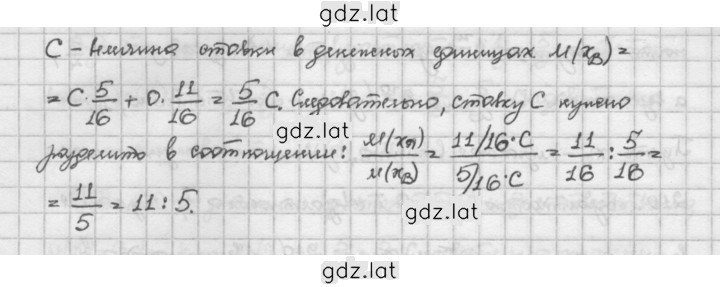 gdz.lat
C - величина ставки в денежных единицах M(x_B) =
= C · 5/16 + 0 · 11/16 = 5/16 C. Следовательно, ставку C нужно
gdz.lat
разделить в соотношении: M(x_A)/M(x_B) = (11/16 · C)/(5/16 · C) = 11/16 : 5/16 =
= 11/5 = 11 : 5.
gdz.lat
gdz.lat